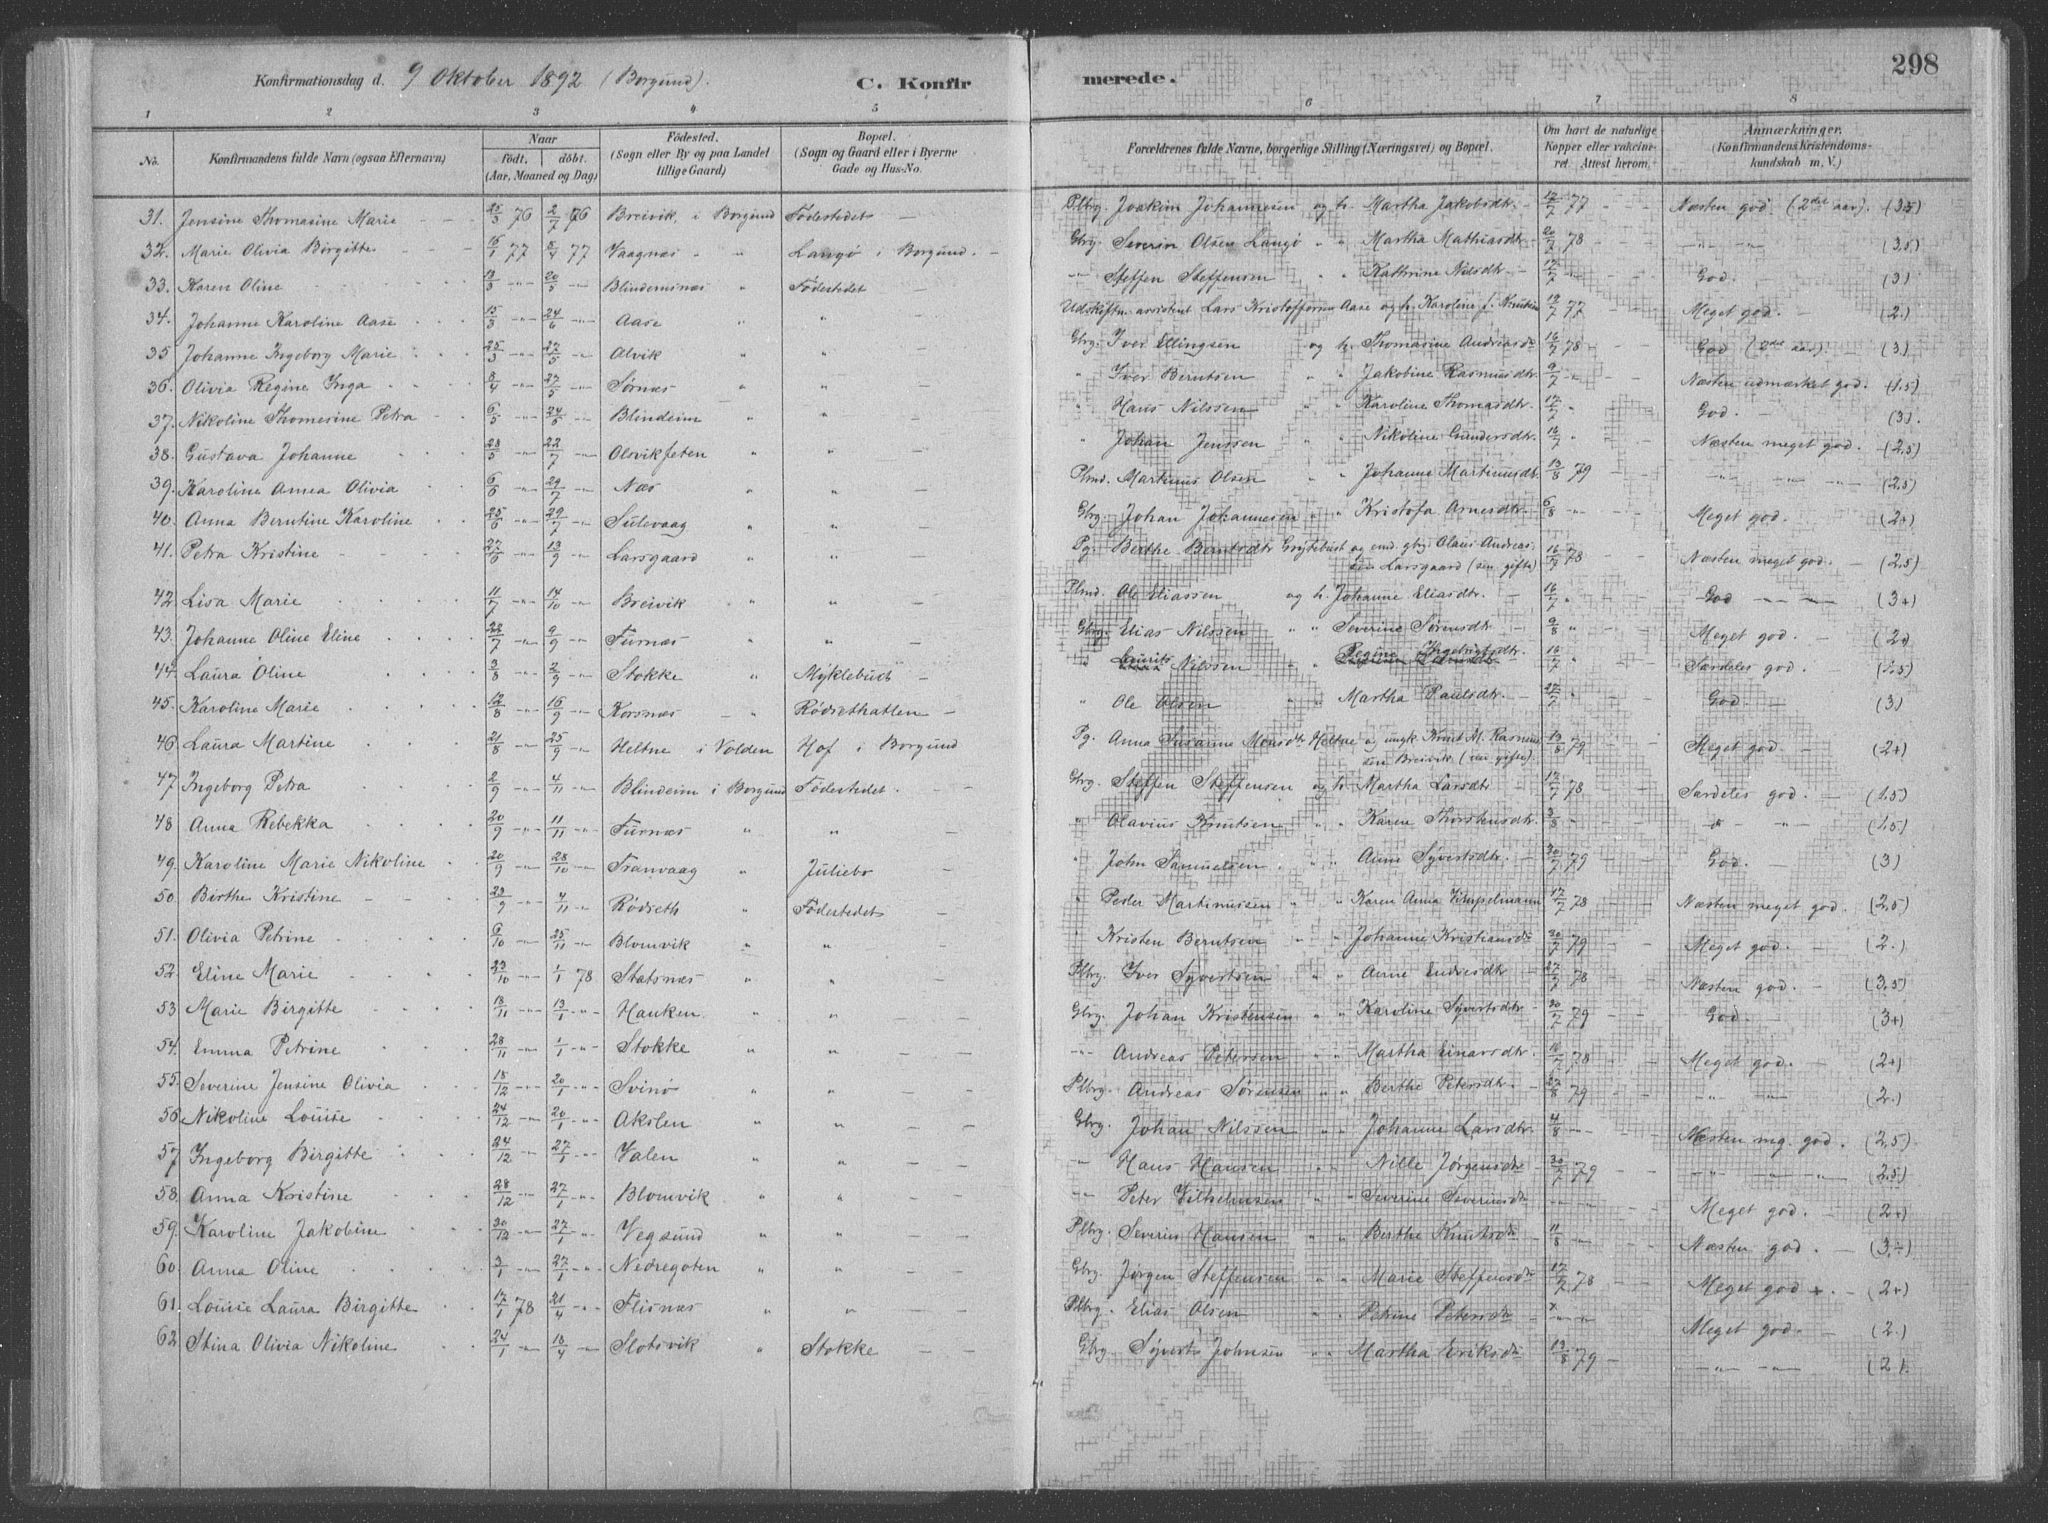 298
Konfirmationsdag d. 9 Oktober 1892 (Borgund). C. Konfirmerede.
1 2 3 4 5 6 7 8
No. Konfirmandens fulde Navn (ogsaa Efternavn) Naar født. døbt. (Aar, Maaned og Dag) Fødested. (Sogn eller By og paa Landet tillige Gaard) Bopæl. (Sogn og Gaard eller i Byerne Gade og Hus-No. Forældrenes fulde Navne, borgerlige Stilling (Næringsvei) og Bopæl. Om havt de naturlige Kopper eller vakcineret. Attest herom. Anmærkninger. (Konfirmandens Kristendomskundskab m. V.)
31. Jensine Thomasine Marie 25/3 76 2/7 76 Breivik i Borgund Fødestedet Plbrg. Joakim Johannesen og h. Martha Jakobsdtr. 17/7 77 Næsten god (2det aar). (3.5)
32. Marie Olivia Birgitte 15/1 77 5/4 77 Vaagnæs " Langø i Borgund. Gbrg. Severin Olsen Langø " " Martha Mathiasdtr. 20/7 78 -"- -"- (3,5)
33. Karen Oline 13/3 -"- 20/5 -"- Blindemsnæs " Fødestedet -"- Steffen Steffensen " " Kathrine Nilsdtr. 17/7 -"- God. (3)
34. Johanne Karoline Aase 15/3 -"- 24/6 -"- Aase " " Udskiftn. assistent Lars Kristoffersen Aase og h. Karoline f. Knutsen 19/7 77 Meget god. (2.)
35 Johanne Ingeborg Marie 25/3 -"- 27/5 -"- Alvik " " Gbrg. Iver Ellingsen og h. Thomasine Andreasdtr 16/7 78 God (2det aar). (3)
36. Olivia Regine Inga 8/4 -"- 27/5 -"- Sørnæs " " " Iver Berntsen " " Jakobine Rasmusdtr. 9/7 -"- Næsten udmærket god. (1.5)
37. Nikoline Thomesine Petra 6/5 -"- 24/5 -"- Blindeim " " " Hans Nilssen " " Karoline Thomasdtr. 17/7 " God. (3).
38. Gustava Johanne 28/5 -"- 22/7 -"- Olsvikfeten " " " Johan Jenssen " " Nikoline Gundersdtr. 16/7 " Næsten meget god. (2,5)
39. Karoline Annea Olivia 6/6 -"- 29/7 -"- Næs " " Plmd. Martinus Olsen " " Johanne Martinusdtr. 13/8 79 -"- -"- -"- (2,5)
40. Anna Berntine Karoline 25/6 -"- 29/7 -"- Sulevaag " " Gbrg. Johan Johannesen " " Kristofa Arnesdtr. 6/8 -"- Meget god. (2+)
41. Petra Kristine 27/6 -"- 13/9 -"- Larsgaard " " Pg. Berthe Berntsdtr Grytebust og emd. gbrg. Olaus Andreassen Larsgaard (sen. gifte) 16/7 78 Næsten meget god. (2,5)
42. Lisa Marie 11/7 -"- 14/10 -"- Breivik " " Plmd. Ole Eliassen og h. Johanne Eliasdtr. 16/7 " God -"- -"- (3+)
43. Johanne Oline Eline 22/7 -"- 9/9 -"- Furnæs " " Gbrg. Elias Nilssen " " Severine Sørensdtr 9/8 " Meget god. (2+)
44. Laura Oline 3/8 -"- 2/9 -"- Stokke " Myklebust " Laurits Nilssen " " Regine Ingebrigtsdtr. 16/7 " Særdeles god. (1,5)
45. Karoline Marie 12/8 -"- 16/9 -"- Korsnæs " Rødsethatlen " Ole Olsen " " Martha Paulsdtr. 27/7 " God. (3)
46 Laura Martine 21/8 -"- 25/9 -"- Heltne i Volden Hof i Borgund Pg. Anna Susanna Monsdtr Heltne og ungk. Knut M. Rasmussen Breivik. 13/8 79 Meget god. (2+)
47 Ingeborg Petra 2/9 -"- 4/11 -"- Blindeim i Borgund Fødestedet. Gbrg. Steffen Steffensen og h. Martha Larsdtr 17/7 78 Særdeles god. (1,5)
48 Anna Rebekka 20/9 -"- 11/11 -"- Furnæs " " " Olavius Knutsen " " Karen Thorstensdtr. 3/8 " -"- -"- (1,5)
49. Karoline Marie Nikoline 20/9 -"- 28/10 -"- Tranvaag " Juliebø " John Samuelsen " " Anne Syvertsdtr. 30/7 79 God. (3)
50. Birthe Kristine 23/9 -"- 4/11 -"- Rødseth " Fødestedet " Peder Martinussen " " Karen Anna Vimpelmann 17/7 78 Næsten meget god. (2,5)
51. Olivia Petrine 6/10 -"- 25/11 -"- Blomvik " " " Kristen Berntsen " " Johanne Kristiansdtr 30/7 79 Meget god. (2.)
52. Eline Marie 23/10 -"- 1/1 78 Statsnæs " " Plbrg. Iver Syvertsen " " Anne Endresdtr 27/7 78 Næsten god. (3,5)
53 Marie Birgitte 18/11 -"- 13/1 -"- Hauken " " Gbrg. Johan Kristensen " " Karoline Syvertsdtr 30/7 79 God. (3+)
54. Emma Petrine 28/11 -"- 1/1 -"- Stokke " " -"- Andreas Petersen " " Martha Einarsdtr. 16/7 78 Meget god. (2+)
55. Severine Jensine Olivia 18/12 -"- 20/1 -"- Svinø " " Plbrg. Andreas Sørensen " " Berthe Petersdtr. 27/8 79 -"- -"- (2.)
56. Nikoline Louise 24/12 -"- 20/1 -"- Akslen " " Gbrg. Johan Nilssen " " Johanne Larsdtr. 4/8 -"- Næsten mg. god. (2,5)
57 Ingeborg Birgitte 24/12 -"- 27/1 -"- Valen " " " Hans Hansen " " Nille Jørgensdtr 30/7 79 -"- -"- -"- (2,5)
58. Anna Kristine 28/12 -"- 27/1 -"- Blomvik " " -"- Peter Vilhelmsen " " Severine Severinsdtr -"- -"- Meget god. (2+)
59. Karoline Jakobine 30/12 -"- 27/1 -"- Vegsund " " Plbrg. Severin Hansen " " Berthe Knutsdtr 11/8 -"- Næsten god. (3,÷)
60. Anna Oline 3/1 -"- 27/1 -"- Nedregoten " " Gbrg. Jørgen Steffensen " " Marie Steffensdtr 17/7 78 Meget god +. (2+)
61. Louise Laura Birgitte 17/1 78 21/4 -"- Flisnæs " " Plbrg. Elias Olsen " Petrine Petersdtr -"- -"- Meget god. (2.)
62 Stina Olivia Nikoline 24/1 -"- 18/4 -"- Slotsvik " Stokke Gbrg. Syvert Johnsen " " Martha Eriksdtr 13/8 79 -"- -"- (2).